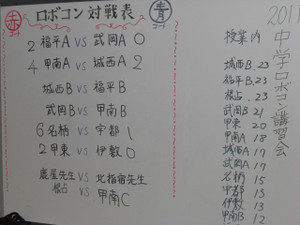 赤コート ロボコン対戦表 青コート
2 福平A VS 武岡A 0
4 甲南A VS 城西A 2
城西B VS 福平B
武岡B VS 甲南B
6 名柄 VS 宇部 1
2 甲東 VS 伊敷 0
鹿屋先生 VS 北指宿先生
根占 VS 甲南C
201
中学ロボコン講習会
授業内
城西B. 23
福平B. 23
根占. 23
武岡B 21
甲東 20
甲南A 18
城西A 17
武岡A 17
名柄 15
宇部 15
伊敷 13
甲南B 12